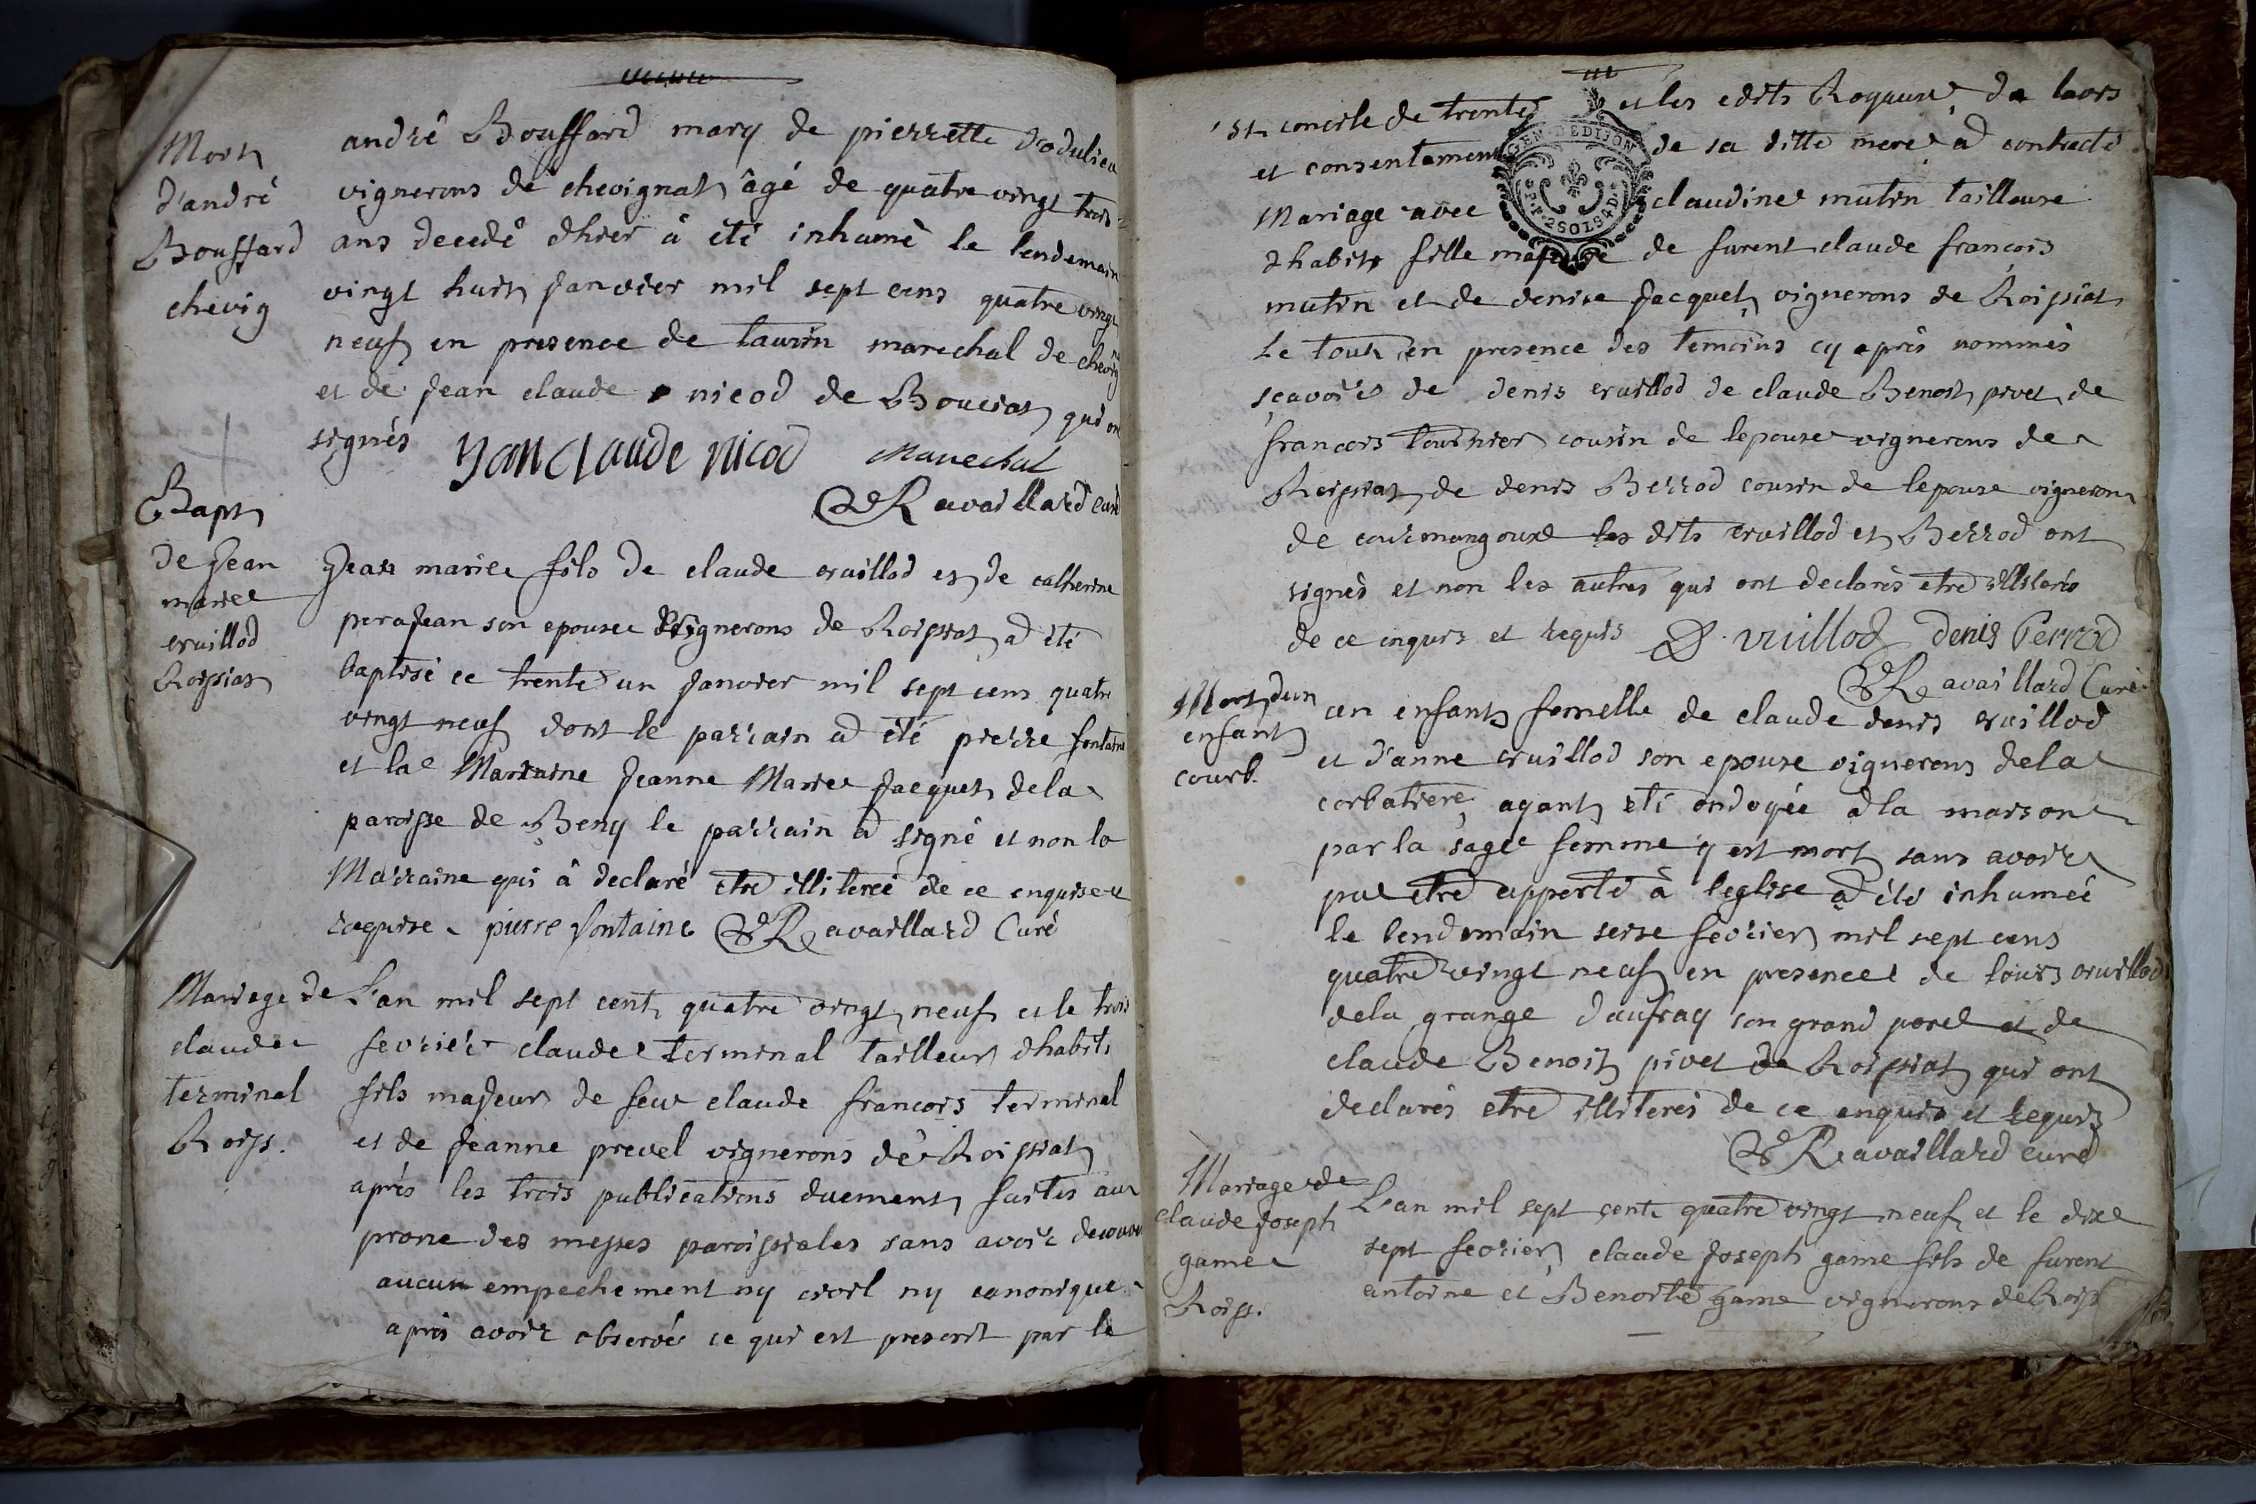 Mort
d'andrê
Bouffard
chevig
andrê Bouffard mary de pierrette
vignerons de chevignat âgé de quatre vingt trois
ans decedê dhier â été inhumê le lendemain
vingt huit janvier mil sept cens quatre vingt
neuf en presence de tavvin marechal de chevig
et de jean claude nicod de Boucias qui on
signés yan claude nicod Marechal
Ravaillard curé
Bapt
de jean
marie
vuillod
Roissiat
Jean marie fils de claude vuillod et de catherine
perajean son epouse vignerons de Roissiat a été
baptisé ce trente un janvier mil sept cens quatre
vingt neuf dont le parrain a été pierre fontaine
et la Marraine jeanne Marie jacquet de la
paroisse de Beny le parrain a signé et non la
Marraine qui â declaré etre illiterée de ce enquise et
requise pierre fontaine Ravaillard Curé
Mariage de
claude
terminal
Roiss.
L'an mil sept cent quatre vingt neuf et le trois
fevrier claude terminal tailleur dhabits
fils majeur de feu claude francois terminal
et de jeanne prevel vignerons de Roissiat
après les trois publications duement faites au
prone des messes paroissiales sans avoir decouve
aucun empechement ny civil ny canonique
après avoir observé ce qui est prescrit par le
St concile de trente et les edits Royaux, de lavis
et consentement de sa ditte mere a contracté
Mariage avec claudine mutin tailleuse
GEN. DE DIJON
2 SOLS 4 D.
dhabits fille majeure de furent claude francois
mutin et de denise jacquet vignerons de Roissiat
le tout en presence des temoins cy après nommés
sçavoir de denis vuillod de claude Benoit pivet de
francois tournier cousin de lepouse vignerons de
Roissiat de denis Berrod cousin de lepouse vigneron
de courmangoux les dits vuillod et Berrod ont
signés et non les autres qui ont declarés etre illiterés
de ce enquis et requis D. vuillod denis Perrod
Ravaillard Curé
Mort dun
enfant
courb.
un enfant femelle de claude denis vuillod
et d'anne vuillod son epouse vignerons de la
corbatiere, ayant été ondoyée a la maison
par la sage femme y est mort sans avoir
pu etre apporté à leglise a été inhumée
le lendemain seise fevrier mil sept cens
quatre vingt neuf en presence de louis vuillod
de la grange daufray son grand pere et de
claude Benoit pivet de Roissiat qui ont
declarés etre illiterés de ce enquis et requis
Ravaillard curé
Mariage de
claude joseph
game
Roiss.
L'an mil sept cent quatre vingt neuf et le dix
sept fevrier claude joseph game fils de furent
antoine et Benoite game vignerons de Roiss